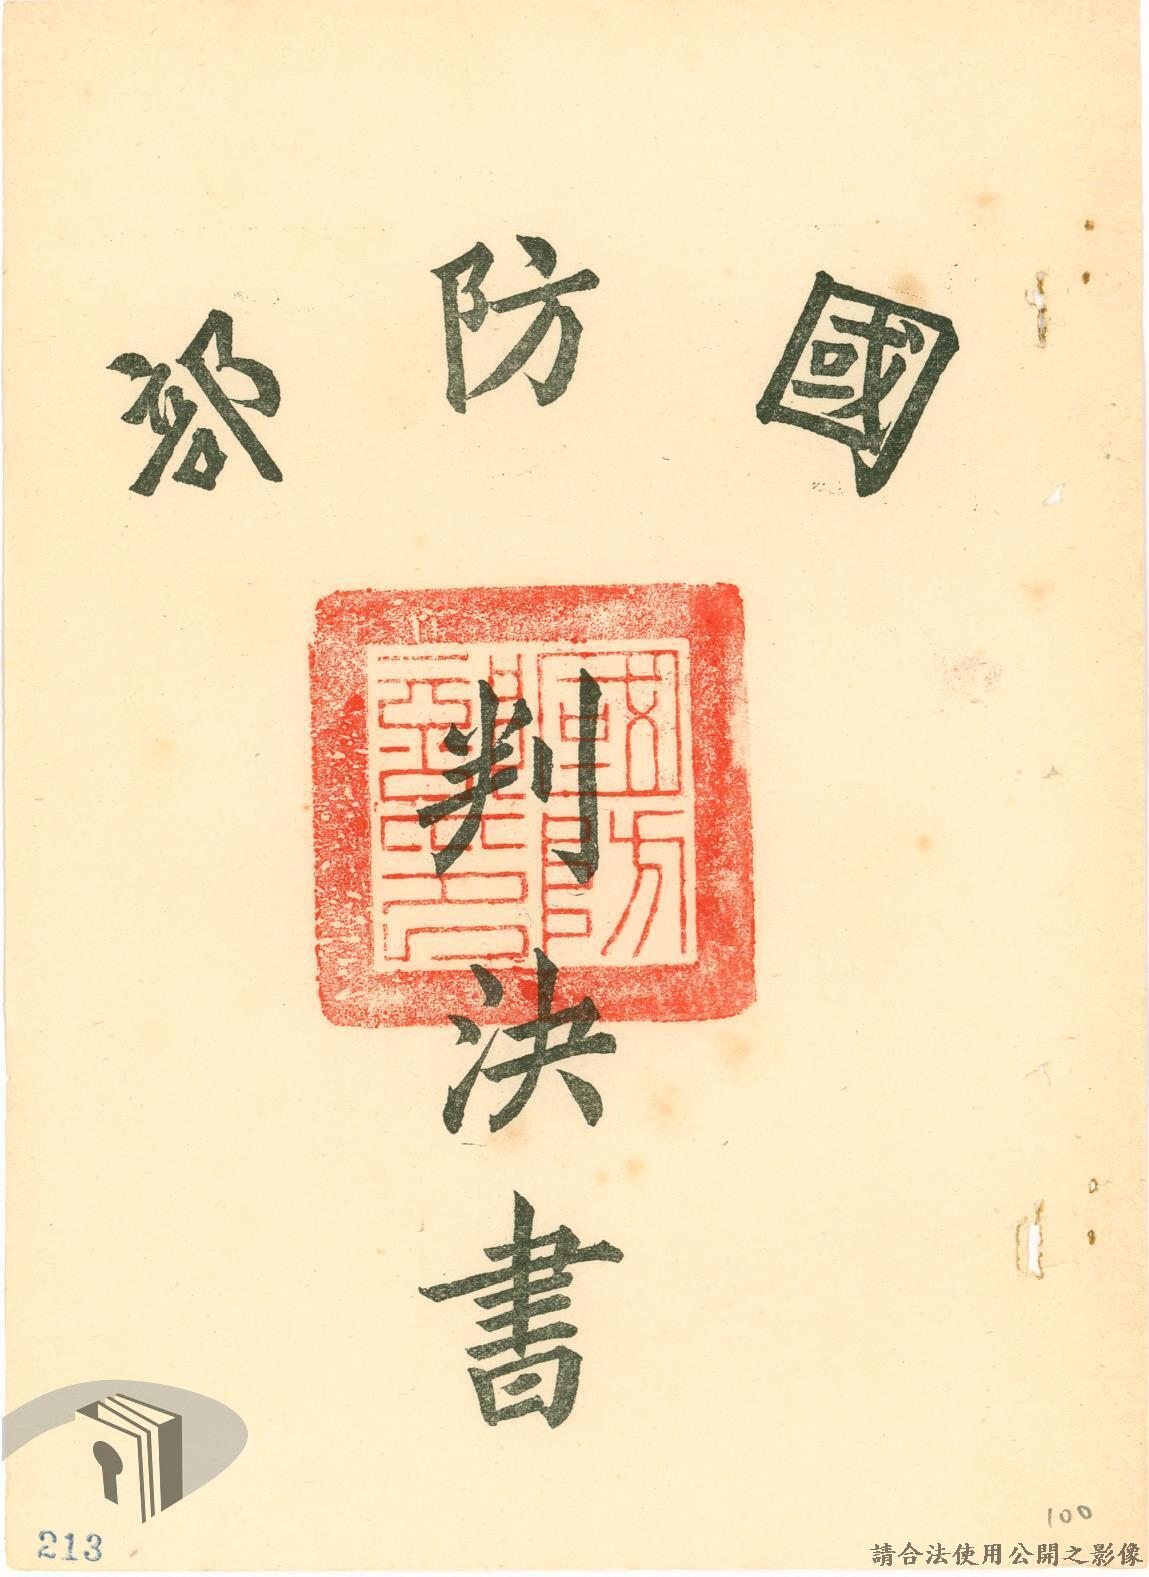 國防部
國防部印
判決書
213
100
請合法使用公開之影像